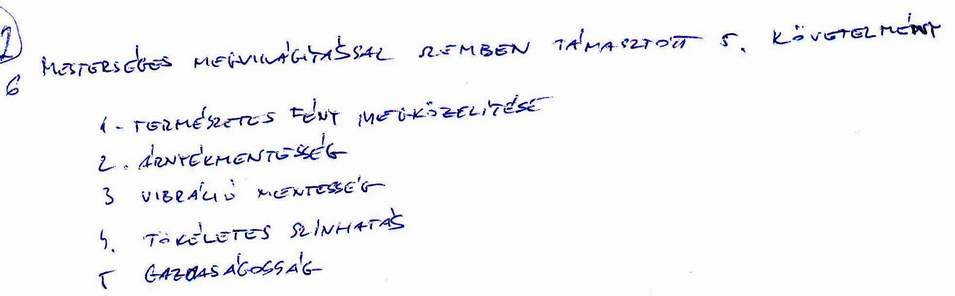 2
6 MESTERSÉGES MEGVILÁGÍTÁSSAL SZEMBEN TÁMASZTOTT 5. KÖVETELMÉNY
1. TERMÉSZETES FÉNY MEGKÖZELÍTÉSE
2. ÁRNYÉKMENTESSÉG
3 VIBRÁCIÓ MENTESSÉG
4. TÖKÉLETES SZÍNHATÁS
5 GAZDASÁGOSSÁG